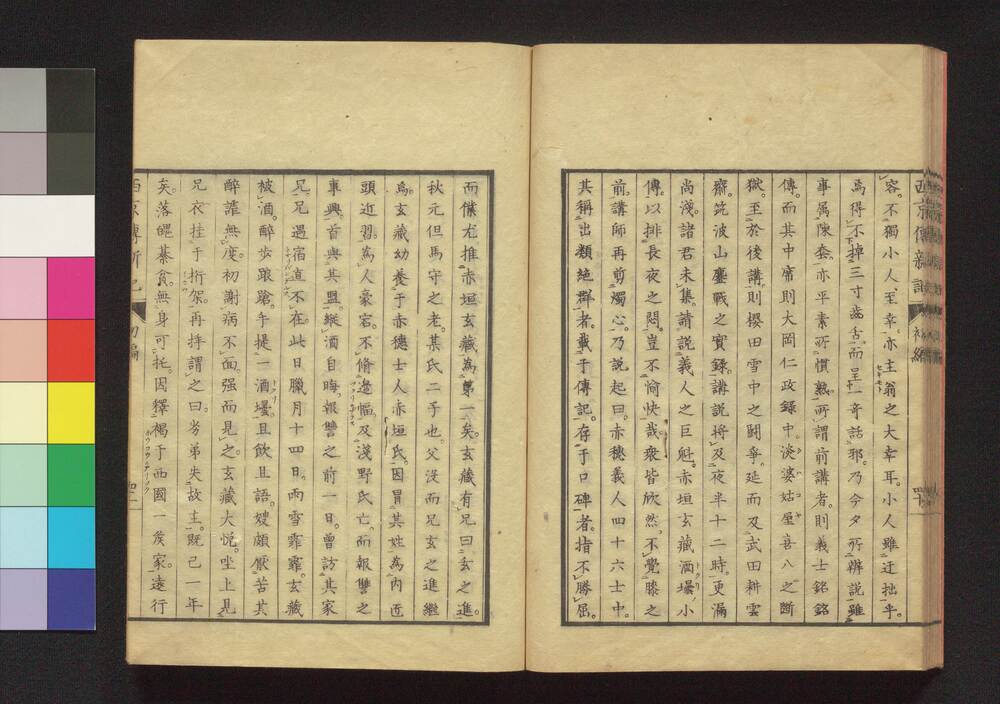 容。不獨小人、至幸、亦主翁之大幸耳。小人雖迂拙乎。
焉得不掉三寸舌、而呈一奇話耶。乃今夕所辨說雖
事属陳套、亦平素所慣熟。所謂前講者。則義士銘銘
傳。而其中席則大岡仁政錄中。淡婆姑屋喜八之斷
獄。至於後講。則櫻田雪中之鬪爭。延而及武田耕雲
齋。筑波山鏖戰之實錄。講說將及夜半十二時。更漏
尚淺。諸君未集。請說義人之巨魁。赤垣玄藏酒壜小
傳。以排長夜之悶。豈不愉快哉。衆皆欣然。不覺膝之
前。講師再剪燭心。乃說起曰。赤穗義人四十六士中。
其稱出類絕群者。載于傳記。存于口碑者。指不勝屈。
而傑尤推赤垣玄藏為第一矣。玄藏有兄曰玄之進。
秋元但馬守之老。某氏二子也。父沒而兄玄之進繼
焉。玄藏幼養于赤穗士人赤垣氏。因冒其姓為內匠
頭近習。為人豪宕。不脩邊幅。及淺野氏亡。而報讐之
事興。首與其盟。縱酒自晦。報讐之前一日。曾訪其家
兄。兄遇宿直不在。此日臘月十四日。雨雪霏霏。玄藏
被酒。醉步踉蹌。手提一酒壜。且飲且語。嫂頗厭苦其
醉謔無度。初謝病不面。强而見之。玄藏大悅。坐上見
兄衣挂于桁架。再拜謂之曰。劣弟失故主。既已一年
矣。落魄棊貧。無身可托。因釋褐于西國一矦家。遠行
初編